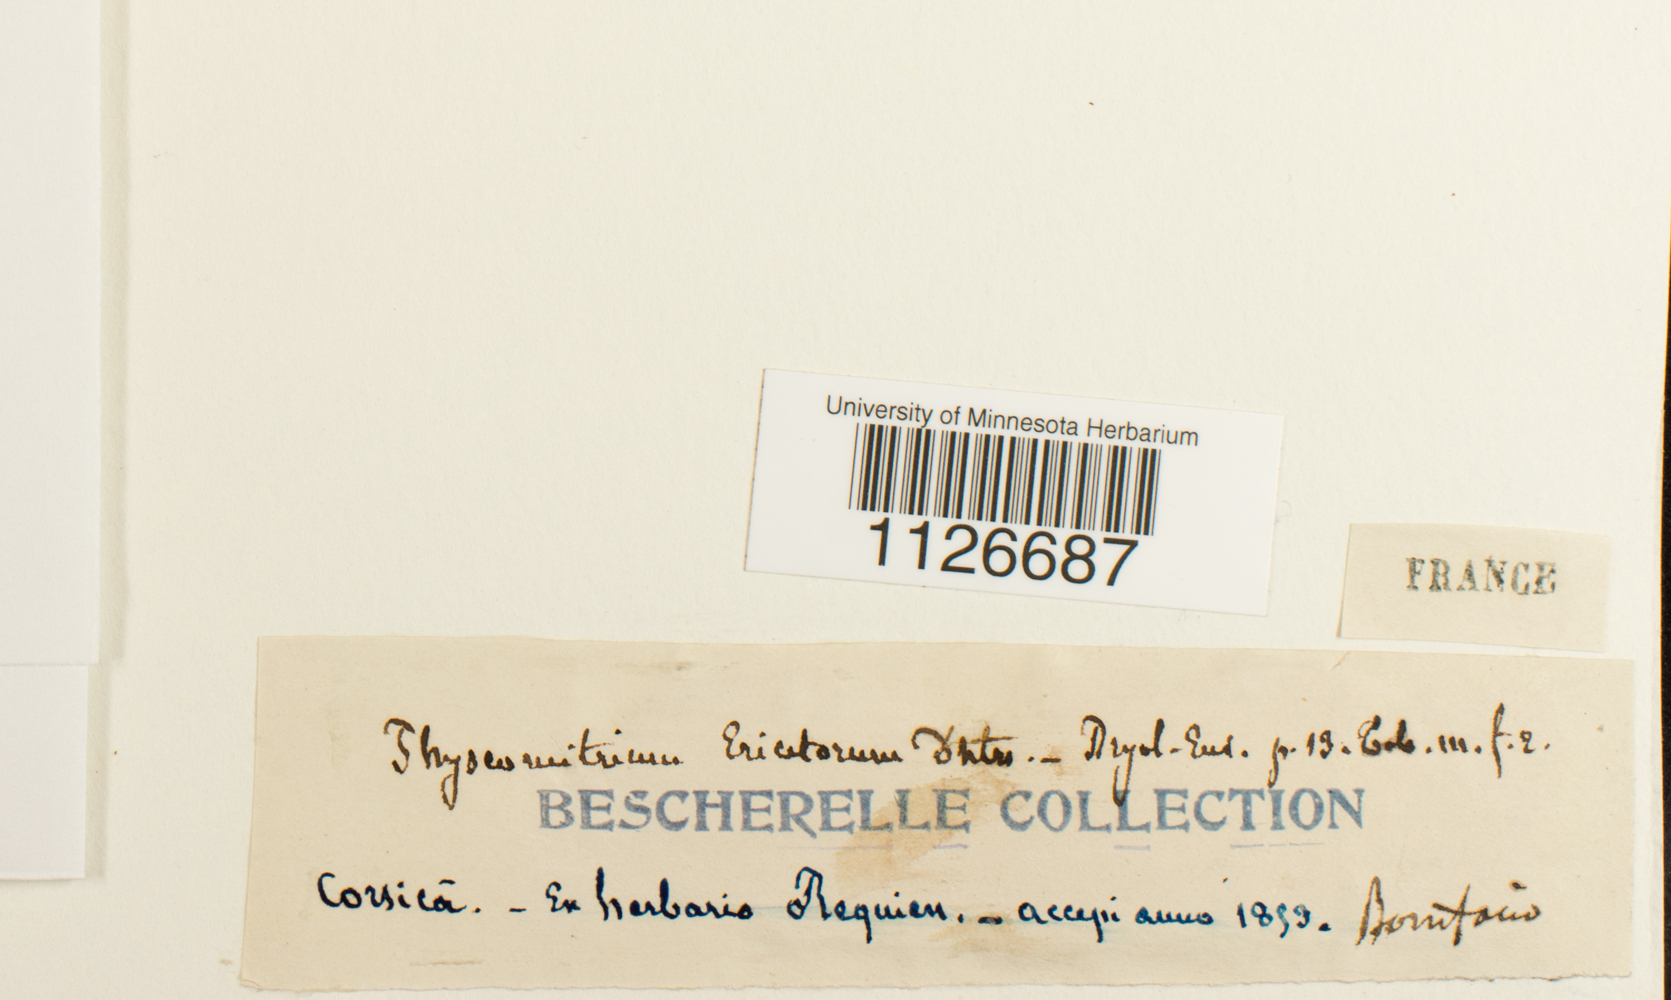 University of Minnesota Herbarium
1126687
FRANCE
Physcomitrium Ericetorum Dntrs. - Bryol-Eur. p. 13. Tab. III. f. 2.
BESCHERELLE COLLECTION
Corsicâ. - Ex herbario Requien. - accepi anno 1853. Bonifacio